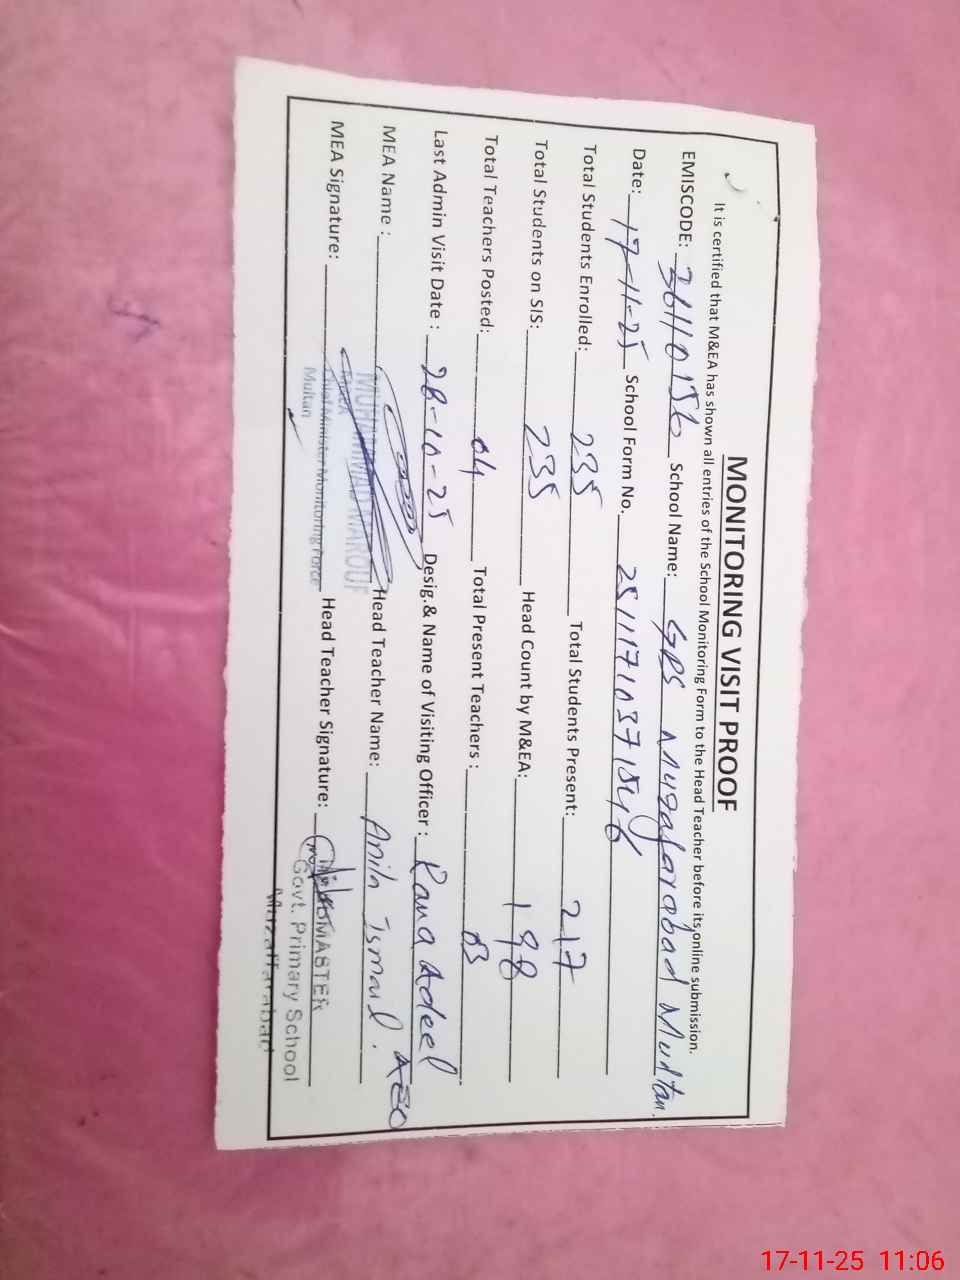 MONITORING VISIT PROOF
It is certified that M&EA has shown all entries of the School Monitoring Form to the Head Teacher before its online submission.
EMISCODE: 36110156 School Name: GPS Muzafarabad Multan.
Date: 17-11-25 School Form No. 25111710371546
Total Students Enrolled: 235 Total Students Present: 217
Total Students on SIS: 235 Head Count by M&EA: 198
Total Teachers Posted: 04 Total Present Teachers : 03
Last Admin Visit Date : 28-10-25 Desig.& Name of Visiting Officer : Rana Adeel AEO
MEA Name : MUHAMMAD MAROOF Head Teacher Name: Anila Ismail.
MEA Signature: Chief Minister Monitoring Force Head Teacher Signature:
Multan
Govt. Primary School
Muzaffarabad
17-11-25 11:06